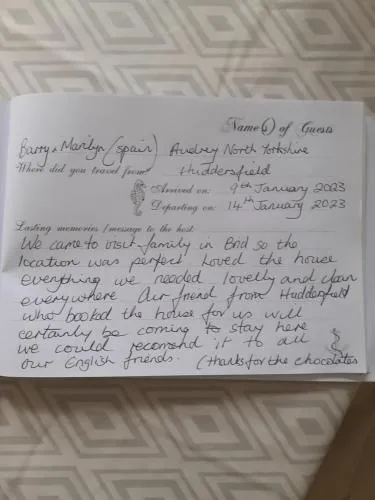 Name(s) of Guests
Barry & Marilyn (Spain) Audrey North Yorkshire
Where did you travel from Huddersfield
Arrived on: 9th January 2023
Departing on: 14th January 2023
Lasting memories / message to the host
We came to visit family in Brid so the
location was perfect. Loved the house
everything we needed lovelly and clean
everywhere Our friend from Huddersfield
who booked the house for us will
certainly be coming to stay here
we could recomend it to all
our English friends. (thanks for the chocolates